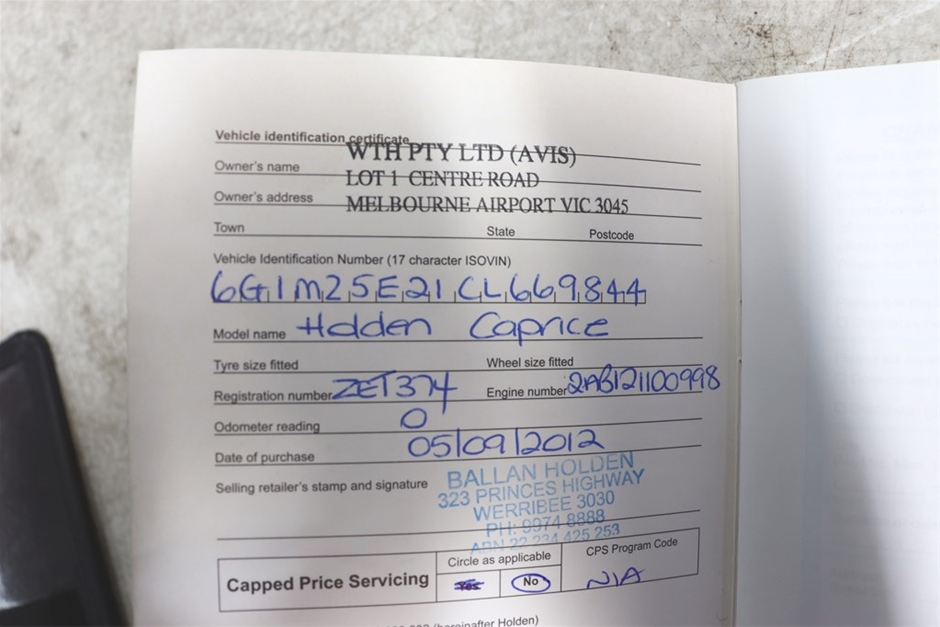 Vehicle identification certificate
Owner's name WTH PTY LTD (AVIS)
LOT 1 CENTRE ROAD
Owner's address MELBOURNE AIRPORT VIC 3045
Town State Postcode
Vehicle Identification Number (17 character ISOVIN)
6G1M25E21CL669844
Model name Holden Caprice
Tyre size fitted Wheel size fitted
Registration number ZET374 Engine number 2AB121100998
Odometer reading 0
Date of purchase 05/09/2012
Selling retailer's stamp and signature
BALLAN HOLDEN
323 PRINCES HIGHWAY
WERRIBEE 3030
PH: 9974 8888
ABN 22 234 425 253
Capped Price Servicing
Circle as applicable
Yes No
CPS Program Code
N/A
(hereinafter Holden)